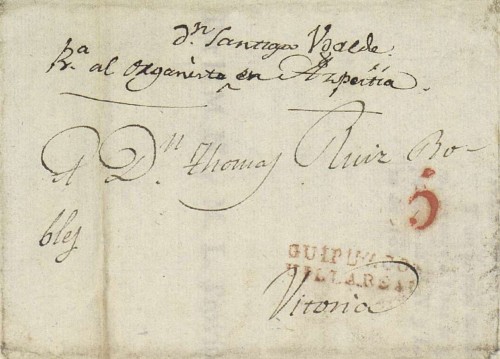 dⁿ Santiago Ugalde.
Rᵃ al organista en Azpeitia.
A Dⁿ Thomas Ruiz Ro-
bles
5
GUIPUZCOA
VILLAREAL
Vitoria